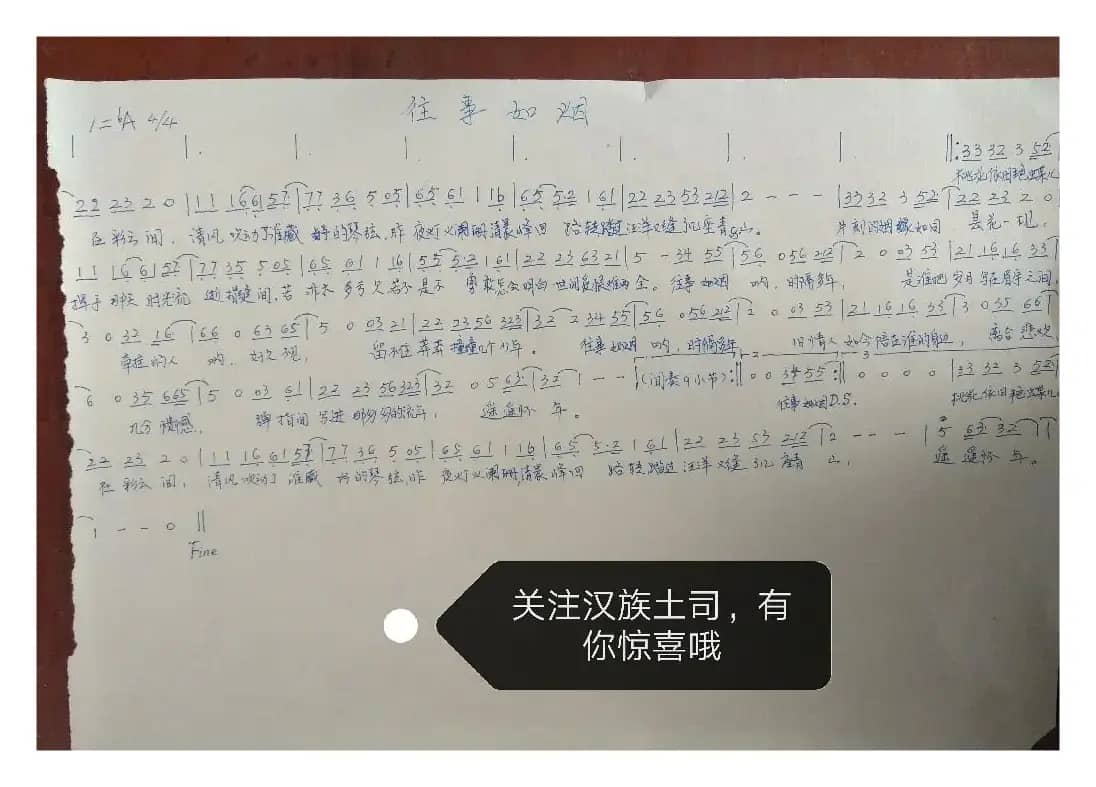 往事如烟
1=bA 4/4
‖: 33 32 3 52
桃花依旧
22 23 2 0 | 11 16 61 57 | 77 36 5 05 | 65 61 1 16 | 65 52 1 61 | 22 23 53 212 | 2 - - - | 33 32 3 52 | 22 23 2 0
在彩云间，清风吹动了谁藏 的琴弦，昨夜灯火阑珊清晨峰回 路转踏过汪洋又逢几座青山。 片刻的姻缘如同 昙花一现，
11 16 61 57 | 77 35 5 05 | 65 61 1 16 | 55 52 1 61 | 22 23 63 21 | 5 - 34 55 | 56 056 212 | 2 0 03 53 | 21 16 16 33
挥手 那天 时光流逝 指缝间，苦 亦 多 若不是 怎么明白世间 难两全。往事如烟 哟，时隔多年， 是谁把岁月写在眉宇之间，
3 0 32 16 | 66 0 63 65 | 5 0 03 21 | 22 23 56 323 | 32 2 34 55 | 56 056 212 | 2 0 03 53 | 21 16 16 33 | 3 0 35 66
牵挂的人 哟，好久 现， 留不住 几个少年。 往事如烟 哟，时隔多年 旧情人如今陪在谁的身边， 离合悲欢
6 0 35 665 | 5 0 03 61 | 22 23 56 323 | 32 0 5 63 | 32 1 - - | (间奏9小节) :‖ 0 0 34 55 :‖ 0 0 0 0 | 33 32 3 52
几分 感， 弹指间 写进 的流年， 遥遥 年。 往事如烟D.S. 桃花依旧
22 23 2 0 | 11 16 61 57 | 77 36 5 05 | 65 61 1 16 | 65 5·2 1 61 | 22 23 53 212 | 2 - - - | 5 63 32
在 彩云 间， 清风吹动了谁藏 的琴弦，昨 夜灯火阑珊，清晨峰回 路转踏过汪洋又逢几座青 山， 遥 遥 年。
1 - - 0 ‖
Fine
关注汉族土司，有
你惊喜哦